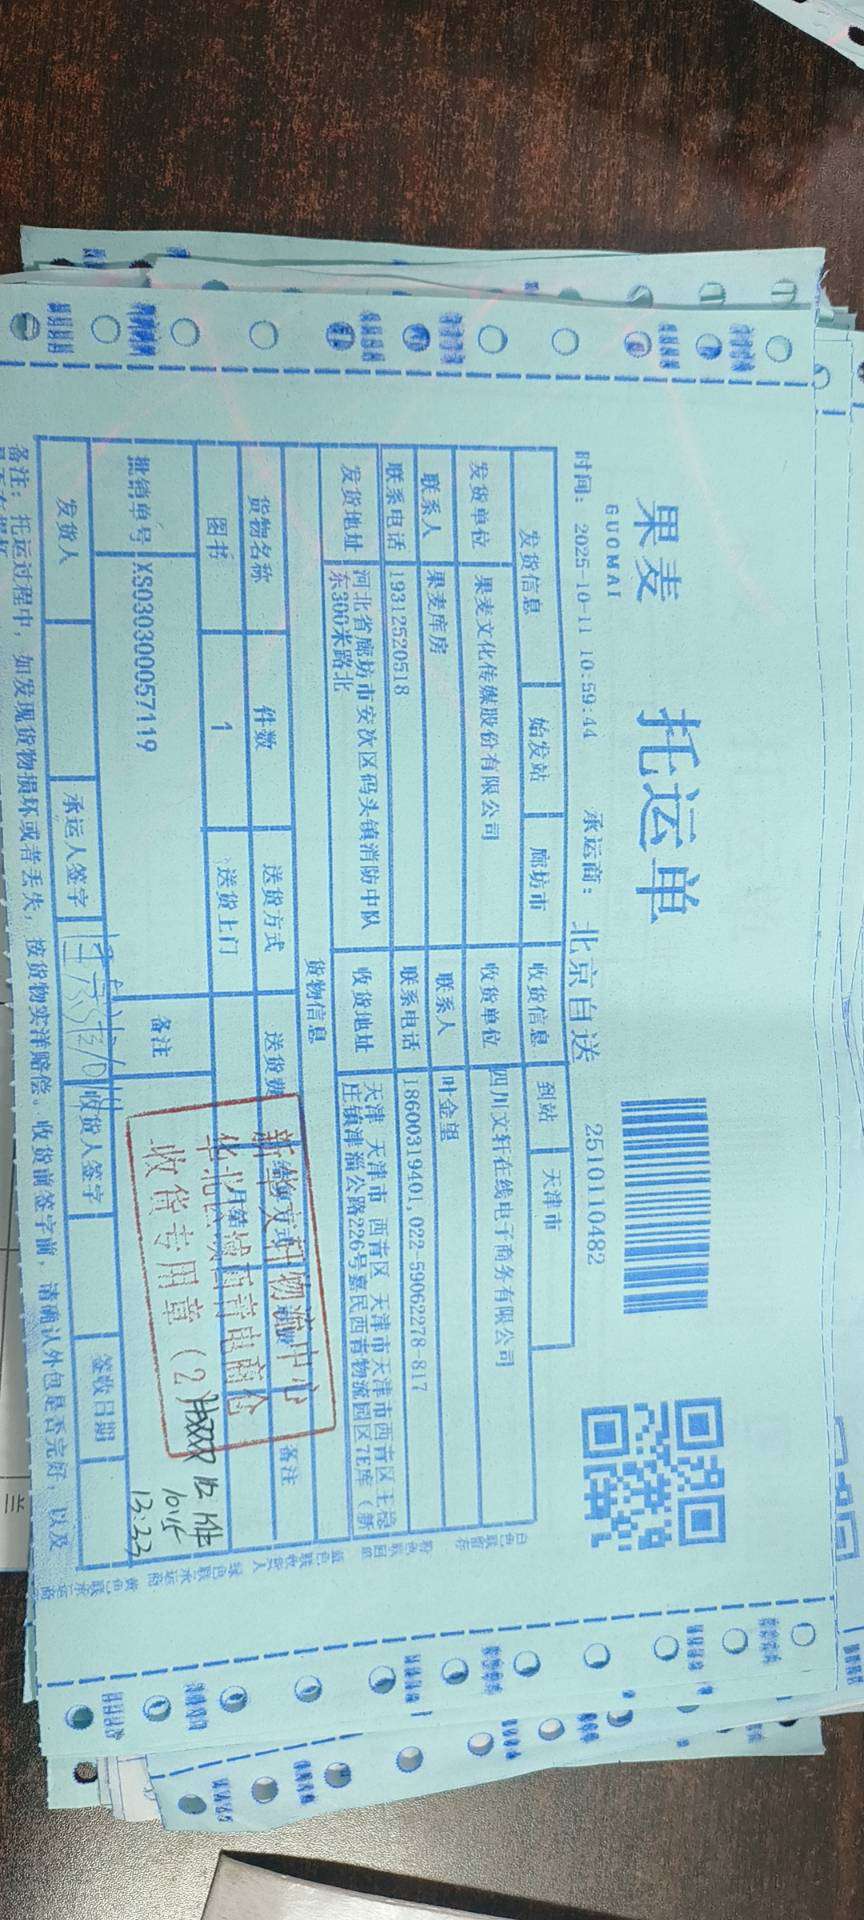 果麦
GUOMAI
托运单
时间: 2025-10-11 10:59:44
承运商: 北京自送
2510110482
发货信息 始发站 廊坊市 收货信息 到站 天津市
发货单位 果麦文化传媒股份有限公司 收货单位 四川文轩在线电子商务有限公司
联系人 果麦库房 联系人 叶金望
联系电话 19312520518 联系电话 18600319401,022-59062278-817
发货地址 河北省廊坊市安次区码头镇消防中队
东300米路北
收货地址 天津 天津市 西青区 天津市天津市西青区王稳
庄镇津淄公路226号嘉民西青物流园区7E库（新
货物信息
货物名称 件数 送货方式 送货费 备注
图书 1 送货上门 月结
批销单号 XS030300057119 备注
新华文轩物流中心
华北区域西青电商仓
收货专用章(2)
10.15
13:33
发货人 承运人签字 收货人签字 签收日期
备注: 托运过程中, 如发现货物损坏或者丢失, 按货物实洋赔偿。收货前签字前, 请确认外包是否完好, 以及
白色联留存
粉色联回单
蓝色联收货人
绿色联承运商
黄色联承运商